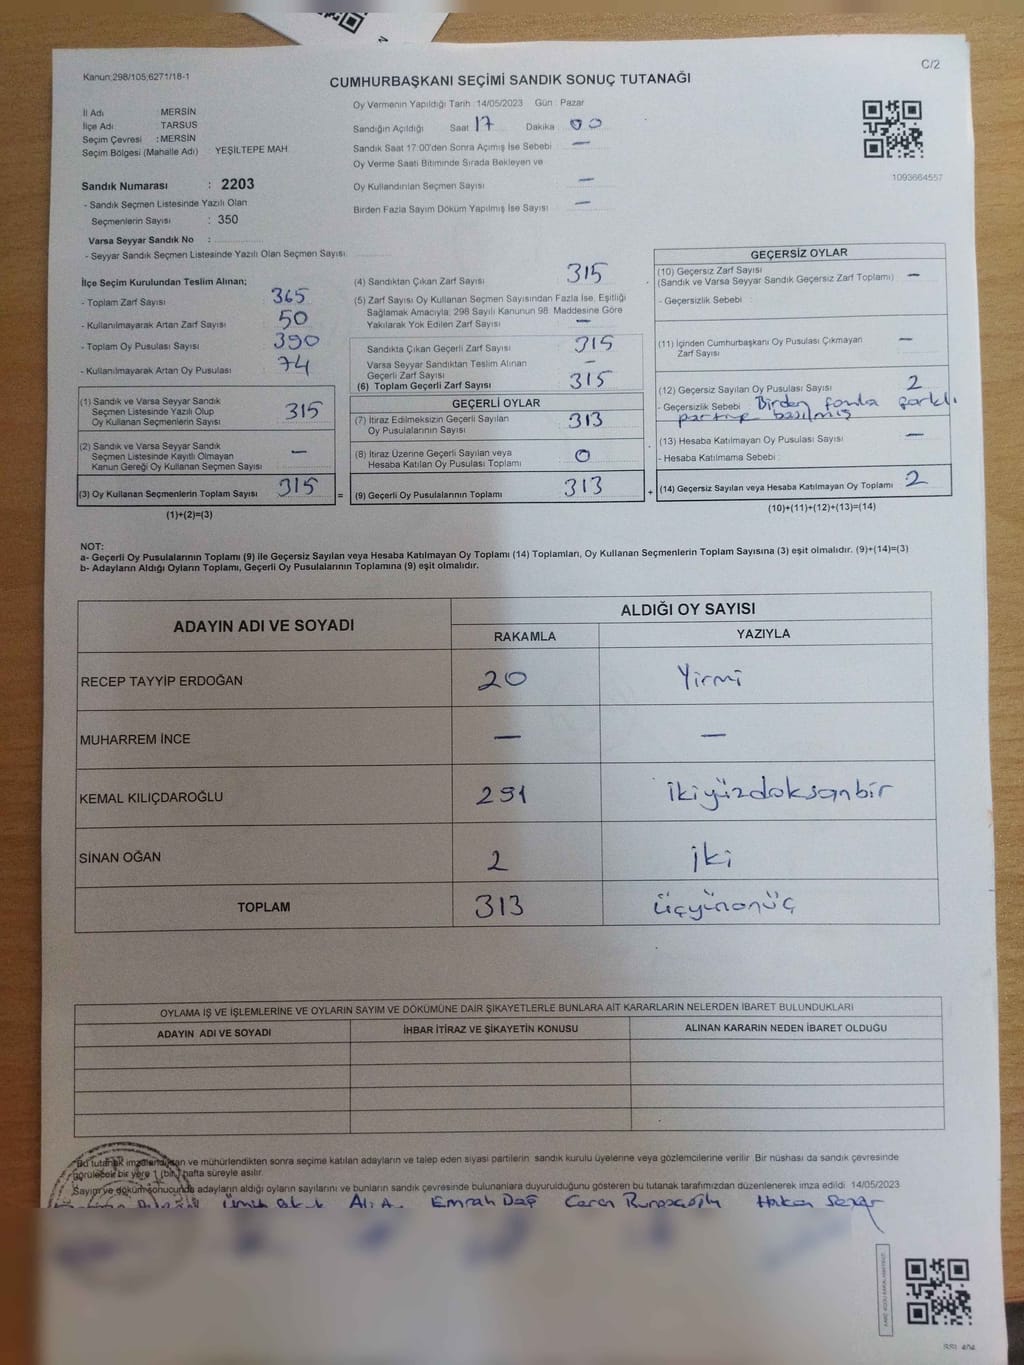 C/2
Kanun;298/105;6271/18-1
CUMHURBAŞKANI SEÇİMİ SANDIK SONUÇ TUTANAĞI
İl Adı : MERSİN
İlçe Adı : TARSUS
Seçim Çevresi : MERSİN
Seçim Bölgesi (Mahalle Adı) YEŞİLTEPE MAH.
Sandık Numarası : 2203
- Sandık Seçmen Listesinde Yazılı Olan
Seçmenlerin Sayısı : 350
Varsa Seyyar Sandık No :
- Seyyar Sandık Seçmen Listesinde Yazılı Olan Seçmen Sayısı
Oy Vermenin Yapıldığı Tarih : 14/05/2023 Gün : Pazar
Sandığın Açıldığı Saat 17 Dakika 00
Sandık Saat 17:00'den Sonra Açımış İse Sebebi —
Oy Verme Saati Bitiminde Sırada Bekleyen ve
Oy Kullandırılan Seçmen Sayısı —
Birden Fazla Sayım Döküm Yapılmış İse Sayısı —
1093664557
İlçe Seçim Kurulundan Teslim Alınan;
- Toplam Zarf Sayısı 365
- Kullanılmayarak Artan Zarf Sayısı 50
- Toplam Oy Pusulası Sayısı 390
- Kullanılmayarak Artan Oy Pusulası 74
(1) Sandık ve Varsa Seyyar Sandık
Seçmen Listesinde Yazılı Olup
Oy Kullanan Seçmenlerin Sayısı 315
(2) Sandık ve Varsa Seyyar Sandık
Seçmen Listesinde Kayıtlı Olmayan
Kanun Gereği Oy Kullanan Seçmen Sayısı —
(3) Oy Kullanan Seçmenlerin Toplam Sayısı 315 =
(1)+(2)=(3)
(4) Sandıktan Çıkan Zarf Sayısı 315
(5) Zarf Sayısı Oy Kullanan Seçmen Sayısından Fazla İse, Eşitliği
Sağlamak Amacıyla, 298 Sayılı Kanunun 98. Maddesine Göre
Yakılarak Yok Edilen Zarf Sayısı —
Sandıkta Çıkan Geçerli Zarf Sayısı 315
Varsa Seyyar Sandıktan Teslim Alınan
Geçerli Zarf Sayısı —
(6) Toplam Geçerli Zarf Sayısı 315
GEÇERLİ OYLAR
(7) İtiraz Edilmeksizin Geçerli Sayılan
Oy Pusulalarının Sayısı 313
(8) İtiraz Üzerine Geçerli Sayılan veya
Hesaba Katılan Oy Pusulası Toplamı 0
(9) Geçerli Oy Pusulalarının Toplamı 313 +
GEÇERSİZ OYLAR
(10) Geçersiz Zarf Sayısı
(Sandık ve Varsa Seyyar Sandık Geçersiz Zarf Toplamı) —
- Geçersizlik Sebebi :
(11) İçinden Cumhurbaşkanı Oy Pusulası Çıkmayan
Zarf Sayısı —
(12) Geçersiz Sayılan Oy Pusulası Sayısı 2
- Geçersizlik Sebebi Birden fazla farklı
partiye basılmış
(13) Hesaba Katılmayan Oy Pusulası Sayısı —
- Hesaba Katılmama Sebebi :
(14) Geçersiz Sayılan veya Hesaba Katılmayan Oy Toplamı 2
(10)+(11)+(12)+(13)=(14)
NOT:
a- Geçerli Oy Pusulalarının Toplamı (9) ile Geçersiz Sayılan veya Hesaba Katılmayan Oy Toplamı (14) Toplamları, Oy Kullanan Seçmenlerin Toplam Sayısına (3) eşit olmalıdır. (9)+(14)=(3)
b- Adayların Aldığı Oyların Toplamı, Geçerli Oy Pusulalarının Toplamına (9) eşit olmalıdır.
ADAYIN ADI VE SOYADI ALDIĞI OY SAYISI
RAKAMLA YAZIYLA
RECEP TAYYİP ERDOĞAN 20 Yirmi
MUHARREM İNCE — —
KEMAL KILIÇDAROĞLU 291 ikiyüzdoksanbir
SİNAN OĞAN 2 iki
TOPLAM 313 üçyüzonüç
OYLAMA İŞ VE İŞLEMLERİNE VE OYLARIN SAYIM VE DÖKÜMÜNE DAİR ŞİKAYETLERLE BUNLARA AİT KARARLARIN NELERDEN İBARET BULUNDUKLARI
ADAYIN ADI VE SOYADI İHBAR İTİRAZ VE ŞİKAYETİN KONUSU ALINAN KARARIN NEDEN İBARET OLDUĞU
Bu tutanak imzalandıktan ve mühürlendikten sonra seçime katılan adayların ve talep eden siyasi partilerin sandık kurulu üyelerine veya gözlemcilerine verilir .Bir nüshası da sandık çevresinde
görülecek bir yere 1 (bir) hafta süreyle asılır.
Sayım ve döküm sonucunda adayların aldığı oyların sayılarını ve bunların sandık çevresinde bulunanlara duyurulduğunu gösteren bu tutanak tarafımızdan düzenlenerek imza edildi. 14/05/2023
Ali A. Emrah Dağ Hakan Sezer